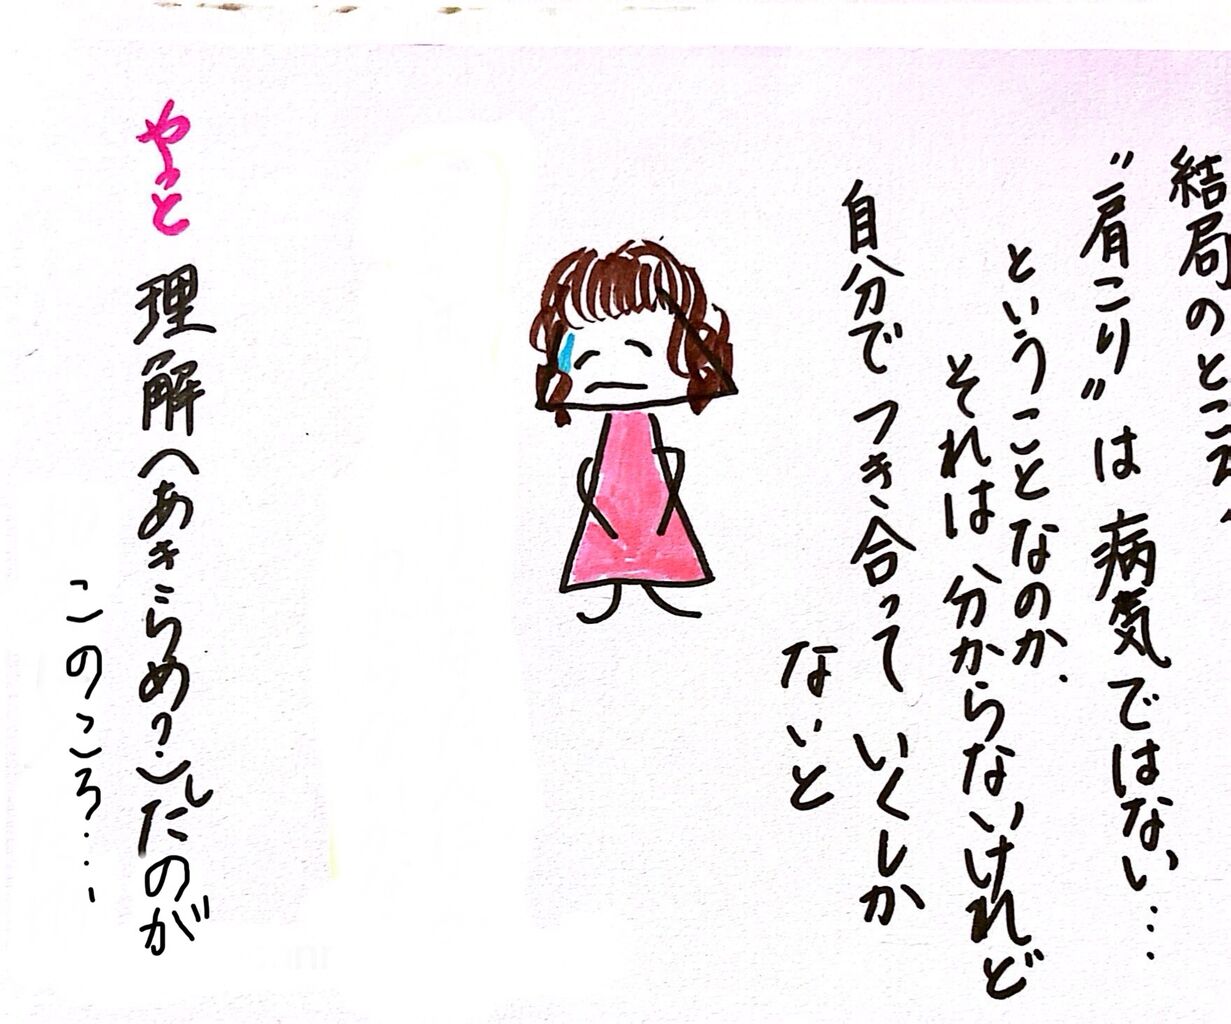 結局のところ、
〝肩こり〟は病気ではない…
ということなのか、
それは分からないけれど
自分でつき合っていくしか
ないと
やっと理解(あきらめ?)したのが
このころ…